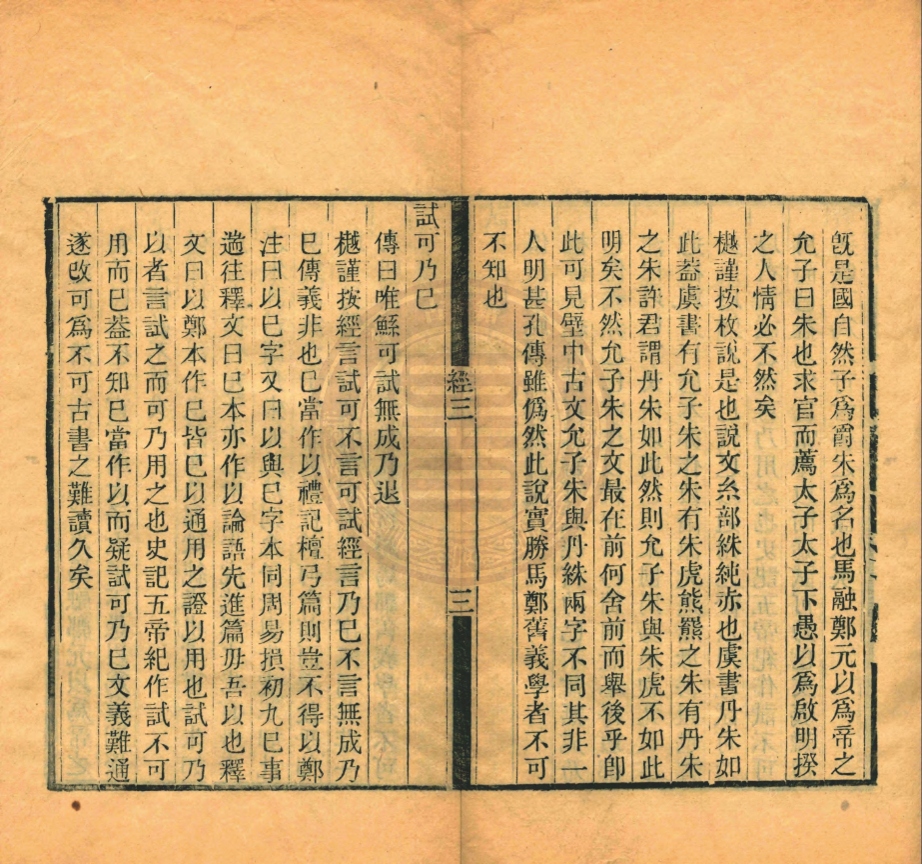 旣是國自然子爲爵朱爲名也馬融鄭元以爲帝之
允子曰朱也求官而薦太子太子下愚以爲啟明揆
之人情必不然矣
樾謹按枚說是也說文糸部絑純赤也虞書丹朱如
此葢虞書有允子朱之朱有朱虎熊羆之朱有丹朱
之朱許君謂丹朱如此然則允子朱與朱虎不如此
明矣不然允子朱之文最在前何舍前而舉後乎卽
此可見壁中古文允子朱與丹絑兩字不同其非一
人明甚孔傳雖僞然此說實勝馬鄭舊義學者不可
不知也
經三
三
試可乃巳
傳曰唯鯀可試無成乃退
樾謹按經言試可不言可試經言乃巳不言無成乃
巳傳義非也巳當作以禮記檀弓篇則豈不得以鄭
注曰以巳字又曰以與巳字本同周易損初九巳事
遄往釋文曰巳本亦作以論語先進篇毋吾以也釋
文曰以鄭本作巳皆巳以通用之證以用也試可乃
以者言試之而可乃用之也史記五帝紀作試不可
用而巳葢不知巳當作以而疑試可乃巳文義難通
遂改可爲不可古書之難讀久矣